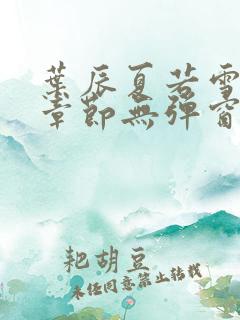 葉辰夏若雪
章節無彈窗
耙胡豆
未经同意禁止转载